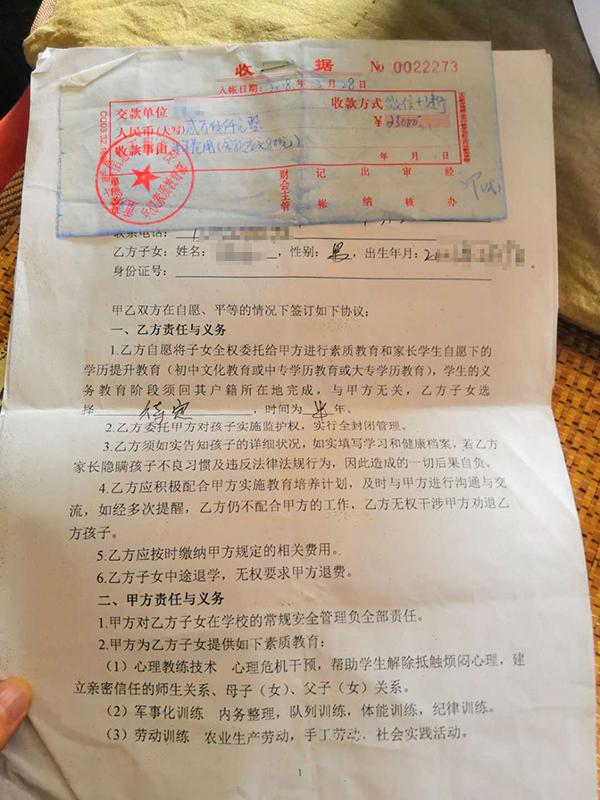 收 据 No 0022273
入帐日期：2018年5月28日
交款单位 收款方式 微信+建行
人民币(大写) 贰万伍仟元整 ¥25000.
收款事由
年 月 日
财会主管 记帐 出纳 审核 经办
联系电话：
乙方子女：姓名： ，性别：男，出生年月：2
身份证号：
甲乙双方在自愿、平等的情况下签订如下协议：
一、乙方责任与义务
1.乙方自愿将子女全权委托给甲方进行素质教育和家长学生自愿下的
学历提升教育（初中文化教育或中专学历教育或大专学历教育），学生的义
务教育阶段须回其户籍所在地完成，与甲方无关，乙方子女选
择 待定 ，时间为 半 年。
2.乙方委托甲方对孩子实施监护权，实行全封闭管理。
3.乙方须如实告知孩子的详细状况，如实填写学习和健康档案，若乙方
家长隐瞒孩子不良习惯及违反法律法规行为，因此造成的一切后果自负。
4.乙方应积极配合甲方实施教育培养计划，及时与甲方进行沟通与交
流，如经多次提醒，乙方仍不配合甲方的工作，乙方无权干涉甲方劝退乙
方孩子。
5.乙方应按时缴纳甲方规定的相关费用。
6.乙方子女中途退学，无权要求甲方退费。
二、甲方责任与义务
1.甲方对乙方子女在学校的常规安全管理负全部责任。
2.甲方为乙方子女提供如下素质教育：
（1）心理教练技术 心理危机干预，帮助学生解除抵触烦闷心理，建
立亲密信任的师生关系、母子（女）、父子（女）关系。
（2）军事化训练 内务整理，队列训练，体能训练，纪律训练。
（3）劳动训练 农业生产劳动，手工劳动，社会实践活动。
1